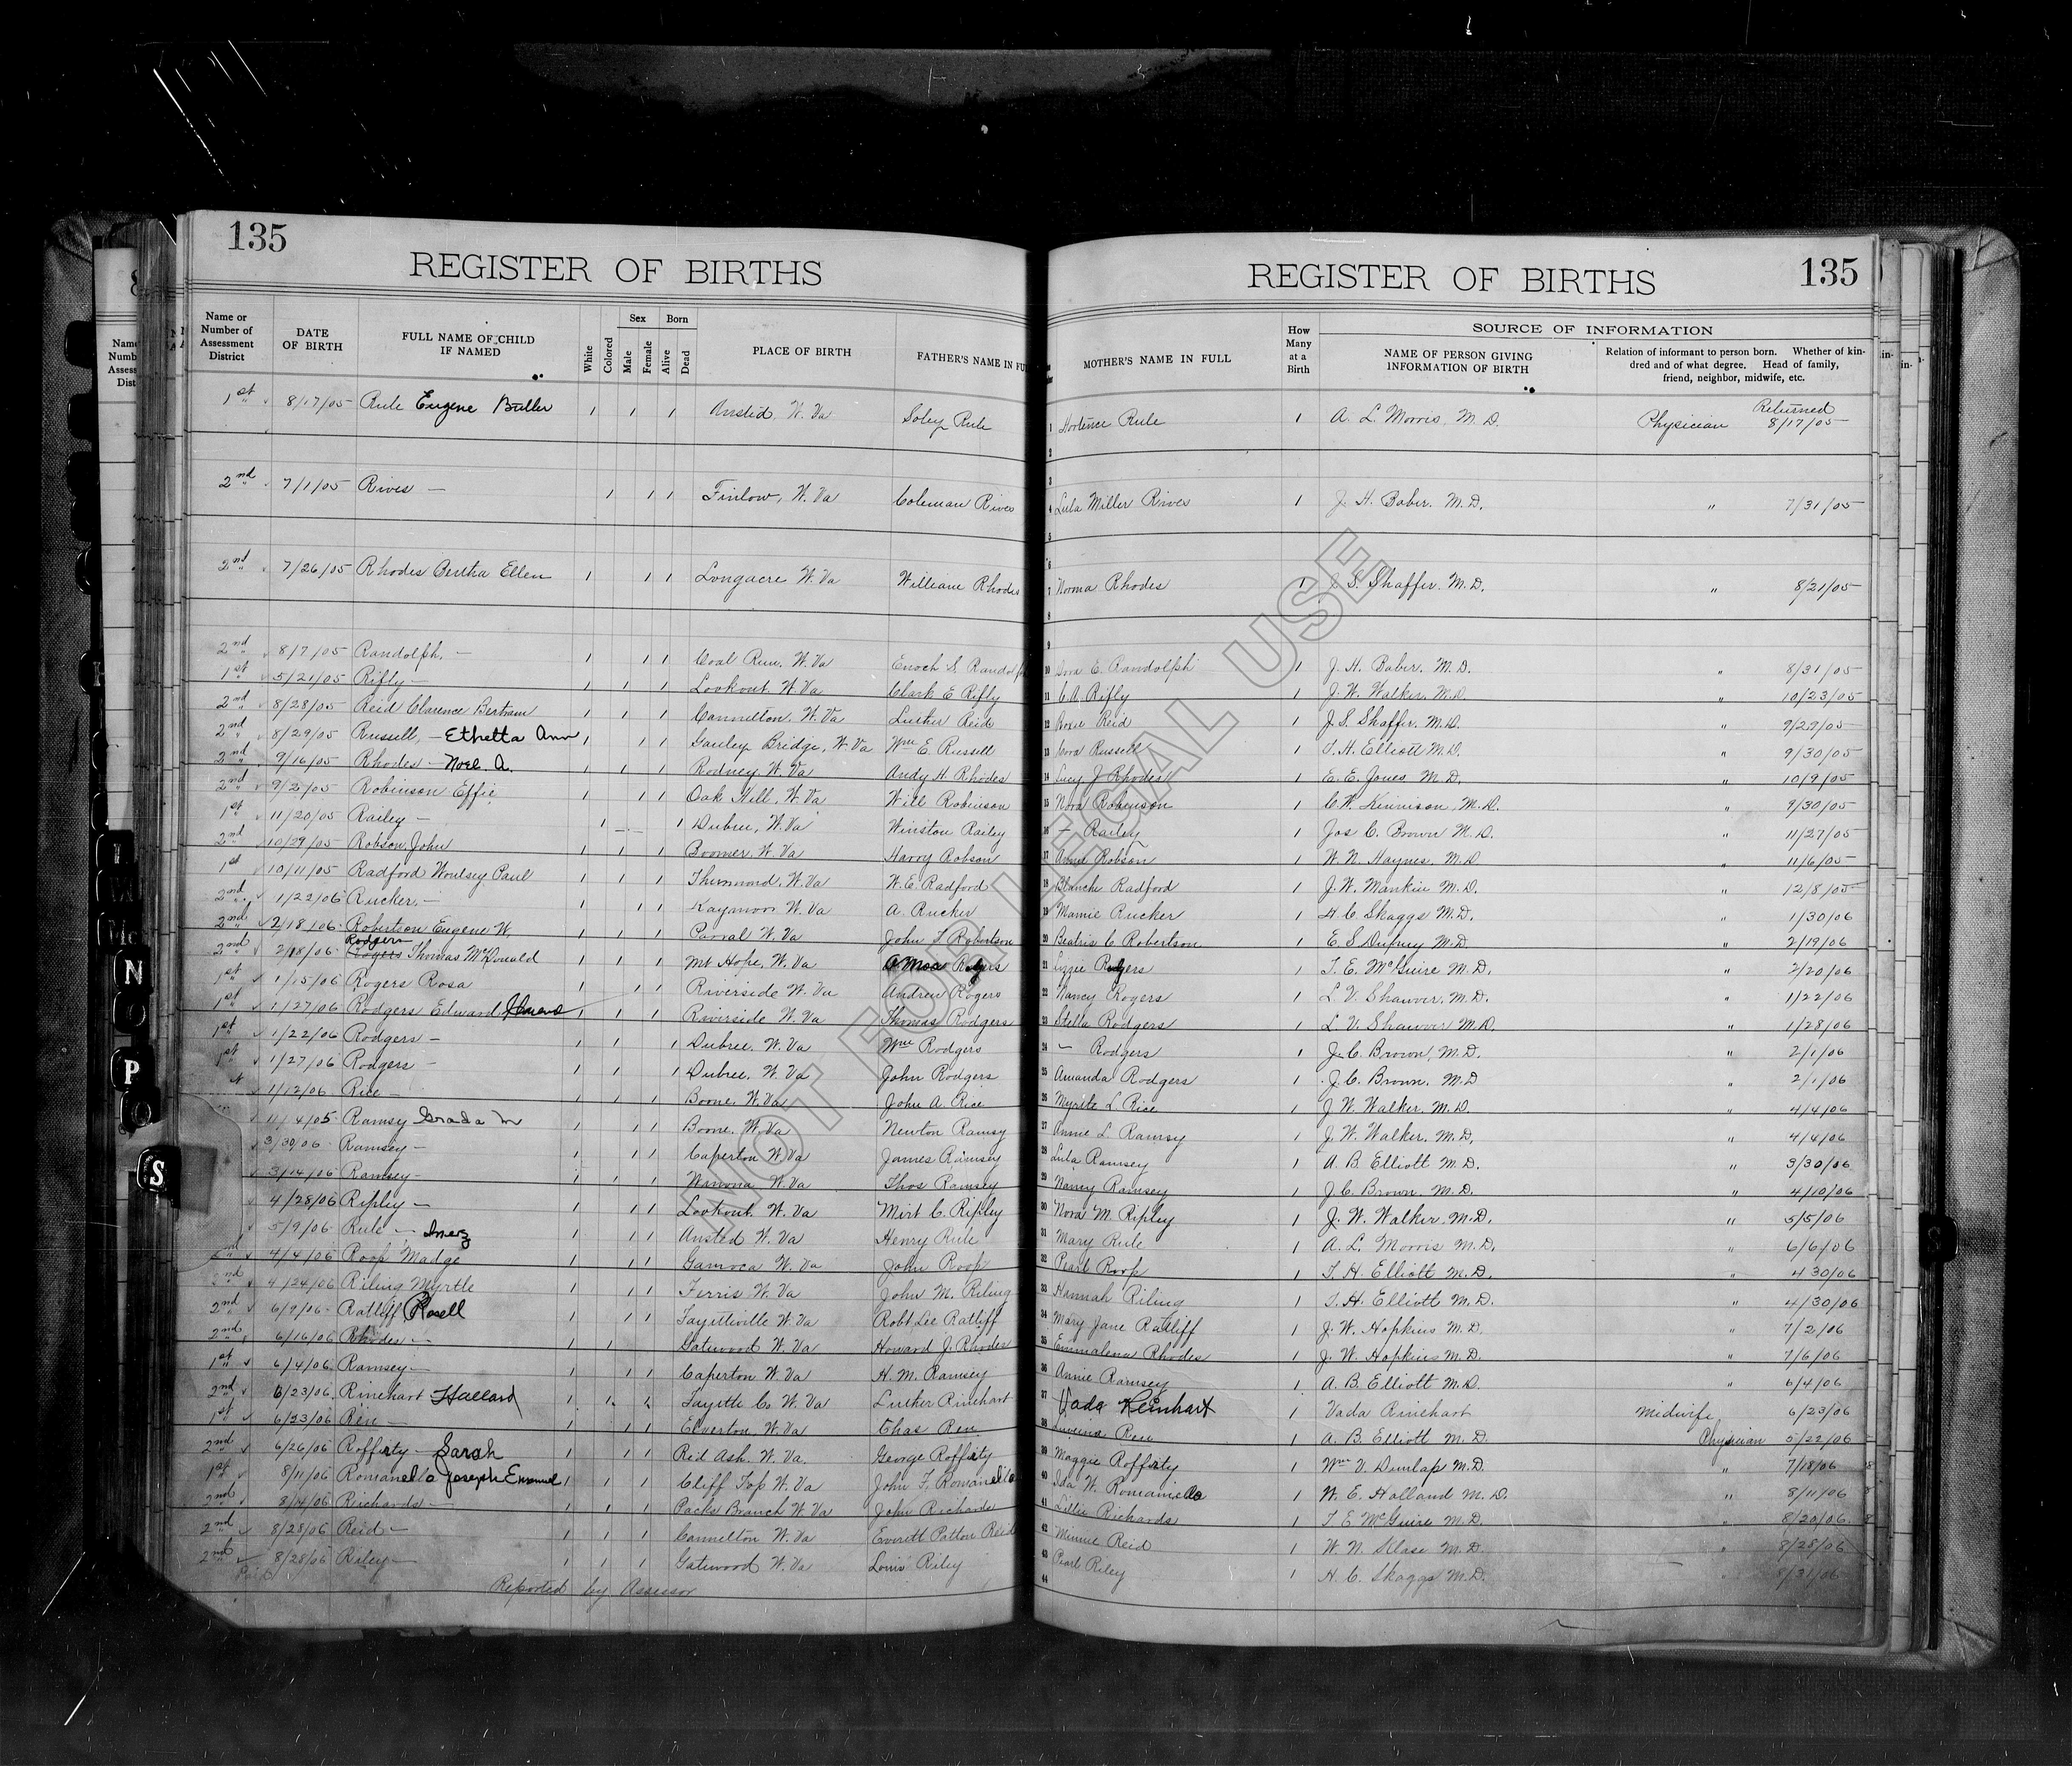 135
REGISTER OF BIRTHS
Name or Number of Assessment District | DATE OF BIRTH | FULL NAME OF CHILD IF NAMED | White | Colored | Sex Male Female | Born Alive Dead | PLACE OF BIRTH | FATHER'S NAME IN FU
1st " 8/17/05 Rule Eugene Butler 1 1 1 Ansted W. Va Soley Rule
2nd " 7/1/05 Rives — 1 1 1 Finlow, W. Va Coleman Rives
2nd " 7/26/05 Rhodes Bertha Ellen 1 1 1 Longacre W. Va William Rhodes
2nd " 8/7/05 Randolph. — 1 1 1 Coal Run, W. Va Enoch S. Randolph
1st " 5/21/05 Rifly — 1 1 1 Lookout W. Va Clark E Rifly
2nd " 8/28/05 Reid Clarence Bertram 1 1 1 Cannelton, W. Va Luther Reid
2nd " 8/29/05 Russell, — Ethetta Ann 1 1 1 Gauley Bridge, W. Va Wm E. Russell
2nd " 9/16/05 Rhodes — Noel. A. 1 1 1 Rodney W. Va Andy H. Rhodes
2nd " 9/2/05 Robinson Effie 1 1 1 Oak Hill, W. Va Will Robinson
1st " 11/20/05 Railey — 1 — 1 Dubree, W. Va Winston Railey
2nd " 10/29/05 Robson John 1 1 1 Boomer, W. Va Harry Robson
1st 10/11/05 Radford Woulsey Paul 1 1 1 Thurmond, W. Va W. E. Radford
2nd " 1/22/06 Rucker. — 1 1 1 Kaymoor W. Va A. Rucker
2nd " 2/18/06 Robertson Eugene W. 1 1 1 Parral W. Va John T Robertson
2nd " 2/18/06 Rodgers Rogers Thomas McDonald 1 1 1 Mt Hope, W. Va Amos Rodgers
1st " 1/15/06 Rogers Rosa 1 1 1 Riverside W. Va Andrew Rogers
1st " 1/27/06 Rodgers Edward 1 1 1 Riverside W. Va Thomas Rodgers
1st " 1/22/06 Rodgers — 1 1 1 Dubree, W. Va Wm Rodgers
1st 1/27/06 Rodgers — 1 1 1 Dubree, W. Va John Rodgers
1/12/06 Rice — 1 1 1 Boone, W. Va John A. Rice
11/4/05 Ramsy Grada M 1 1 1 Boone, W. Va Newton Ramsy
3/30/06 Ramsey — 1 1 1 Caperton W. Va James Ramsey
3/14/06 Ramsey — 1 1 1 Winona W. Va Thos Ramsey
4/28/06 Ripley — 1 1 1 Lookout W. Va Mirt C. Ripley
5/9/06 Rule — Inez 1 1 1 Ansted W. Va Henry Rule
4/4/06 Roop Madge 1 1 1 Gamoca W. Va John Roop
2nd 4/24/06 Riling Myrtle 1 1 1 Ferris W. Va John M. Riling
2nd 6/9/06 Ratliff Rosell 1 1 1 Fayetteville W. Va Robt Lee Ratliff
2nd " 6/16/06 Rhodes — 1 1 Gatewood W. Va Howard J. Rhodes
1st " 6/4/06 Ramsey — 1 1 1 Caperton W. Va H. M. Ramsey
2nd " 6/23/06 Rinehart Hallard 1 1 1 Fayette Co W. Va Luther Rinehart
1st " 6/23/06 Ren — 1 1 1 Elverton W. Va Chas Ren
2nd " 6/26/06 Rofferty — Sarah 1 1 1 Red Ash. W. Va George Rofferty
1st " 8/11/06 Romanello Joseph Emanuel 1 1 1 Cliff Top W. Va John F. Romanello
2nd " 8/14/06 Richards — 1 1 1 Packs Branch W. Va John Richards
2nd " 8/28/06 Reid — 1 1 1 Cannelton W. Va Everett Patton Reid
2nd 8/28/06 Riley — 1 1 1 Gatewood W. Va Louis Riley
Reported by Assessor
135
REGISTER OF BIRTHS
MOTHER'S NAME IN FULL | How Many at a Birth | SOURCE OF INFORMATION
NAME OF PERSON GIVING INFORMATION OF BIRTH | Relation of informant to person born. Whether of kindred and of what degree. Head of family, friend, neighbor, midwife, etc.
1 Hortence Rule 1 A. L. Morris, M. D. Physician Returned 8/17/05
2
3
4 Lula Miller Rives 1 J. H. Baber. M. D. " 7/31/05
5
6
7 Norma Rhodes 1 J. S. Shaffer. M. D. " 8/21/05
8
9
10 Dora E. Randolph 1 J. H. Baber. M. D. " 8/31/05
11 C. A. Rifly 1 J. W. Walker. M. D. " 10/23/05
12 Rosie Reid 1 J. S. Shaffer. M. D. " 9/29/05
13 Cora Russell 1 T. H. Elliott M. D. " 9/30/05
14 Lucy J Rhodes 1 E. E. Jones M. D. " 10/9/05
15 Nora Robinson 1 C. W. Kinnison, M. D. " 9/30/05
16 — Railey 1 Jos C. Brown M. D. " 11/27/05
17 Annie Robson 1 W. N. Haynes, M. D. " 11/6/05
18 Blanche Radford 1 J. W. Mankin M. D. " 12/8/05
19 Mamie Rucker 1 H. C. Skaggs M. D. " 1/30/06
20 Beatris C Robertson 1 E. S Dupuy M. D. " 2/19/06
21 Lizzie Rodgers 1 T. E. McGuire M. D. " 2/20/06
22 Nancy Rogers 1 L. V. Shawver. M. D. " 1/22/06
23 Stella Rodgers 1 L. V. Shawver M. D. " 1/28/06
24 — Rodgers 1 J. C. Brown, M. D. " 2/1/06
25 Amanda Rodgers 1 J. C. Brown. M. D " 2/1/06
26 Myrtle L. Rice 1 J. W. Walker. M. D. " 4/4/06
27 Annie L. Ramsy 1 J. W. Walker. M. D. " 4/4/06
28 Lula Ramsey 1 A. B. Elliott M. D. " 3/30/06
29 Nancy Ramsey 1 J. C. Brown. M. D. " 4/10/06
30 Nora M. Ripley 1 J. W. Walker. M. D. " 5/5/06
31 Mary Rule 1 A. L. Morris M. D. " 6/6/06
32 Pearl Roop 1 T. H. Elliott M. D. " 4 30/06
33 Hannah Riling 1 T. H. Elliott M. D. " 4/30/06
34 Mary Jane Ratliff 1 J. W. Hopkins M. D. " 7/2/06
35 Emmalena Rhodes 1 J. W. Hopkins M. D. " 7/6/06
36 Annie Ramsey 1 A. B. Elliott M. D. " 6/4/06
37 Vada Reinhart 1 Vada Rinehart Midwife 6/23/06
38 Ren 1 A. B. Elliott M. D. Physician 5/22/06
39 Maggie Rofferty 1 Wm V. Dunlap M. D. " 7/18/06
40 Ida W. Romanello 1 W. E. Holland M. D. " 8/11/06
41 Lillie Richards 1 T. E McGuire M. D. " 8/20/06
42 Minnie Reid 1 W. N. Slase M. D. " 8/28/06
43 Pearl Riley 1 H. C. Skaggs M. D. " 8/31/06
44
NOT FOR LEGAL USE
N
O
P
Q
S